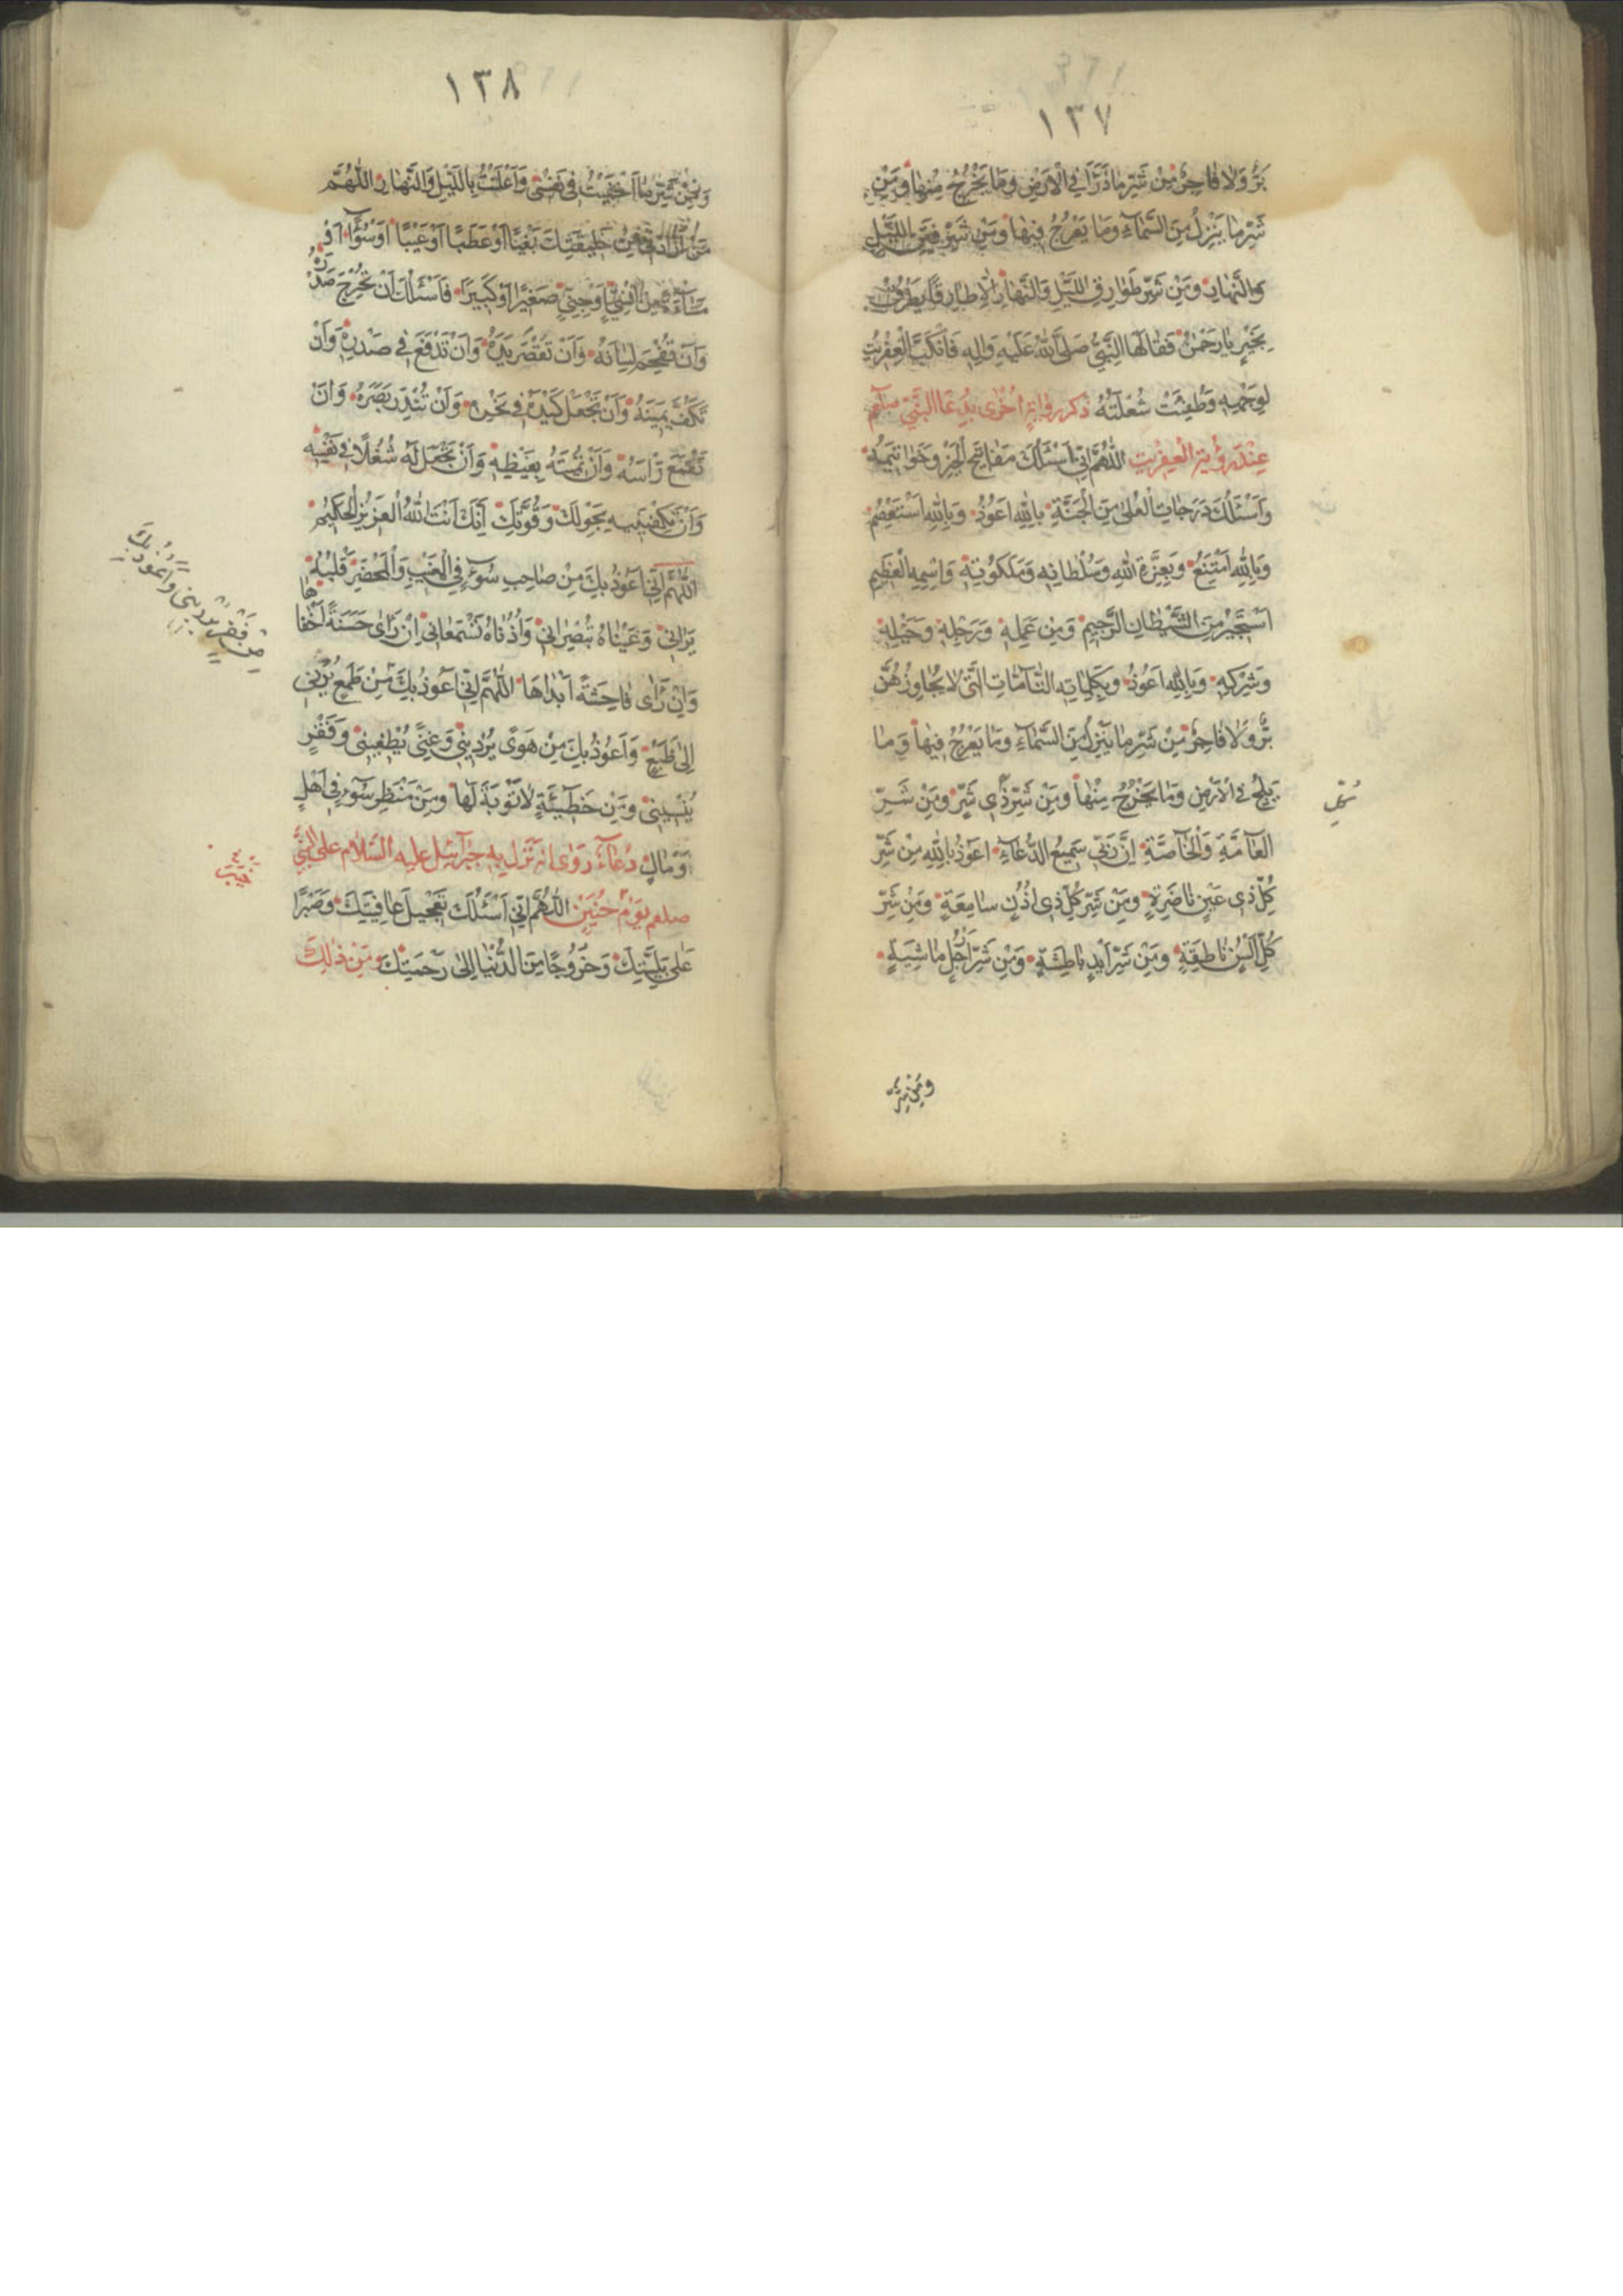 ١٣٧
بَرٌّ وَلا فاجِرٌ مِنْ شَرِّ ما ذَرَأَ فِي الْاَرْضِ وَما يَخْرُجُ مِنْها وَمِنْ
شَرِّ ما يَنْزِلُ مِنَ السَّماءِ وَما يَعْرُجُ فيها وَمِنْ شَرِّ فِتَنِ اللَّيْلِ
وَالنَّهارِ وَمِنْ شَرِّ طَوارِقِ اللَّيْلِ وَالنَّهارِ اِلّا طارِقًا يَطْرُقُ
بِخَيْرٍ يا رَحْمٰنُ فَقالَهَا النَّبِيُّ صَلَّى اللهُ عَلَيْهِ وَالِهِ فَانْكَبَّ الْعِفْريتُ
لِوَجْهِهِ وَطُفِئَتْ شُعْلَتُهُ ذكر رواية اُخْرى بِدُعَا النَّبِيّ صلعم
عِنْدَ رؤية الْعِفْريتِ اَللّٰهُمَّ اِنّي اَسْئَلُكَ مَفاتِحَ الْخَيْرِ وَخَواتيمَهُ
وَاَسْئَلُكَ دَرَجاتِ الْعُلىٰ مِنَ الْجَنَّةِ بِاللهِ اَعُوذُ وَبِاللهِ اَسْتَعْصِمُ
وَبِاللهِ اَمْتَنِعُ وَبِعِزَّةِ اللهِ وَسُلْطانِهِ وَمَلَكُوتِهِ وَاسْمِهِ الْعَظيمِ
اَسْتَجيرُ مِنَ الشَّيْطانِ الرَّجيمِ وَمِنْ عَمَلِهِ وَرَجِلِهِ وَخَيْلِهِ
وَشَرَكِهِ وَبِاللهِ اَعُوذُ وَبِكَلِماتِهِ التّامّاتِ الَّتي لا يُجاوِزُهُنَّ
بَرٌّ وَلا فاجِرٌ مِنْ شَرِّ ما يَنْزِلُ مِنَ السَّماءِ وَما يَعْرُجُ فيها وَما
يَلِجُ فِي الْاَرْضِ وَما يَخْرُجُ مِنْها وَمِنْ شَرِّ ذي شَرٍّ وَمِنْ شَرِّ
كُلِّ
الْعامَّةِ وَالْخاصَّةِ اِنَّ رَبّي سَميعُ الدُّعاءِ اَعُوذُ بِاللهِ مِنْ شَرِّ
كُلِّ ذي عَيْنٍ ناظِرَةٍ وَمِنْ شَرِّ كُلِّ ذي اُذُنٍ سامِعَةٍ وَمِنْ شَرِّ
كُلِّ اَلْسُنٍ ناطِقَةٍ وَمِنْ شَرِّ اَيْدٍ باطِشَةٍ وَمِنْ شَرِّ اَرْجُلٍ ماشِيَةٍ
وَمِنْ شَرِّ
١٣٨
وَمِنْ شَرِّ ما اَخْفَيْتُ في نَفْسي وَاَعْلَنْتُ بِاللَّيْلِ وَالنَّهارِ اَللّٰهُمَّ
مَنْ اَرادَني مِنْ خَليقَتِكَ بَغْيًا اَوْ عَطَبًا اَوْ عَيْبًا اَوْ سُوءًا اَوْ
مَساءَةً مِنْ اِنْسِيٍّ اَوْ جِنِّيٍّ صَغيرًا اَوْ كَبيرًا فَاَسْئَلُكَ اَنْ تُحْرِجَ صَدْرَهُ
وَاَنْ تُفْحِمَ لِسانَهُ وَاَنْ تُقَصِّرَ يَدَهُ وَاَنْ تَدْفَعَ في صَدْرِهِ وَاَنْ
تَكُفَّ يَمينَهُ وَاَنْ تَجْعَلَ كَيْدَهُ في نَحْرِهِ وَاَنْ تُنْدِرَ بَصَرَهُ وَاَنْ
تَقْمَعَ رَأْسَهُ وَاَنْ تُميتَهُ بِغَيْظِهِ وَاَنْ تَجْعَلَ لَهُ شُغُلًا في نَفْسِهِ
وَاَنْ تَكْفِيَنيهِ بِحَوْلِكَ وَقُوَّتِكَ اِنَّكَ اَنْتَ اللهُ الْعَزيزُ الْحَكيمُ
اَللّٰهُمَّ اِنّي اَعُوذُ بِكَ مِنْ صاحِبِ سُوءٍ فِي الْمَغيبِ وَالْمَحْضَرِ قَلْبُهُ
يَراني وَعَيْناهُ تُبْصِراني وَاُذُناهُ تَسْمَعاني اِنْ رَاى حَسَنَةً اَخْفاها
وَاِنْ رَاى فاحِشَةً اَبْداها اَللّٰهُمَّ اِنّي اَعُوذُ بِكَ مِنْ طَمَعٍ يَرُدُّني
اِلى طَبَعٍ وَاَعُوذُ بِكَ مِنْ هَوًى يُرْديني وَغِنًى يُطْغيني وَفَقْرٍ
يُنْسيني وَمِنْ خَطيئَةٍ لا تَوْبَةَ لَها وَمِنْ مَنْظَرِ سُوءٍ في اَهْلٍ
وَمالٍ دُعاء رَوى انه نَزَلَ به جَبْرَئيل عليه السَّلام على النَّبيّ
صلعم يوم حُنَيْن اَللّٰهُمَّ اِنّي اَسْئَلُكَ تَعْجيلَ عافِيَتِكَ وَصَبْرًا
عَلى بَلِيَّتِكَ وَخُرُوجًا مِنَ الدُّنْيا اِلى رَحْمَتِكَ وَمِنْ ذٰلِكَ